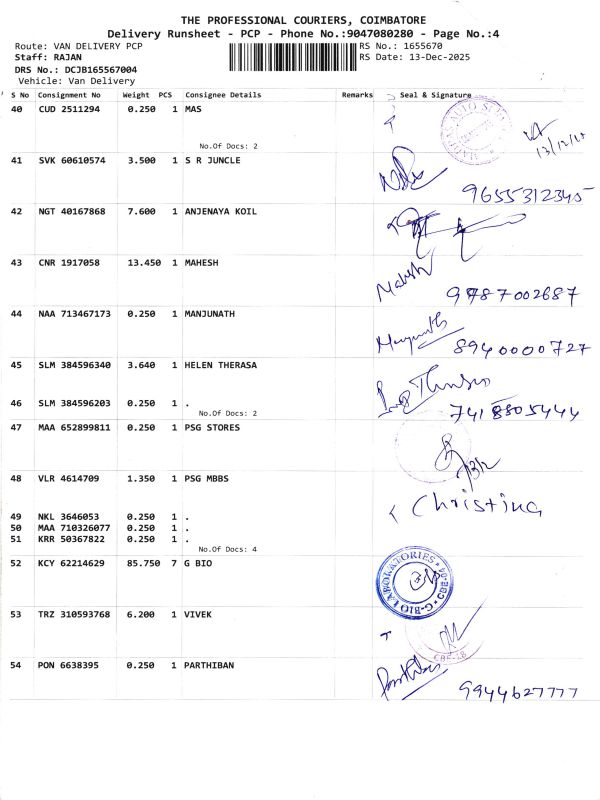 THE PROFESSIONAL COURIERS, COIMBATORE
Delivery Runsheet - PCP - Phone No.:9047080280 - Page No.:4
Route: VAN DELIVERY PCP RS No.: 1655670
Staff: RAJAN RS Date: 13-Dec-2025
DRS No.: DCJB165567004
Vehicle: Van Delivery
S No Consignment No Weight PCS Consignee Details Remarks Seal & Signature
40 CUD 2511294 0.250 1 MAS
13/12/25
No.Of Docs: 2
41 SVK 60610574 3.500 1 S R JUNCLE
9655312345
42 NGT 40167868 7.600 1 ANJENAYA KOIL
43 CNR 1917058 13.450 1 MAHESH
Mahesh
9787002687
44 NAA 713467173 0.250 1 MANJUNATH
Manjunath
8940000727
45 SLM 384596340 3.640 1 HELEN THERASA
46 SLM 384596203 0.250 1 .
No.Of Docs: 2
7418805444
47 MAA 652899811 0.250 1 PSG STORES
48 VLR 4614709 1.350 1 PSG MBBS
Christina
49 NKL 3646053 0.250 1 .
50 MAA 710326077 0.250 1 .
51 KRR 50367822 0.250 1 .
No.Of Docs: 4
52 KCY 62214629 85.750 7 G BIO
G-BIO LABORATORIES
53 TRZ 310593768 6.200 1 VIVEK
54 PON 6638395 0.250 1 PARTHIBAN
9944627777